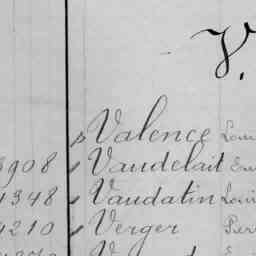 V.
Valence Lou
3908 Vaudelait Em
1348 Vaudatin Loui
4210 Verger Pier